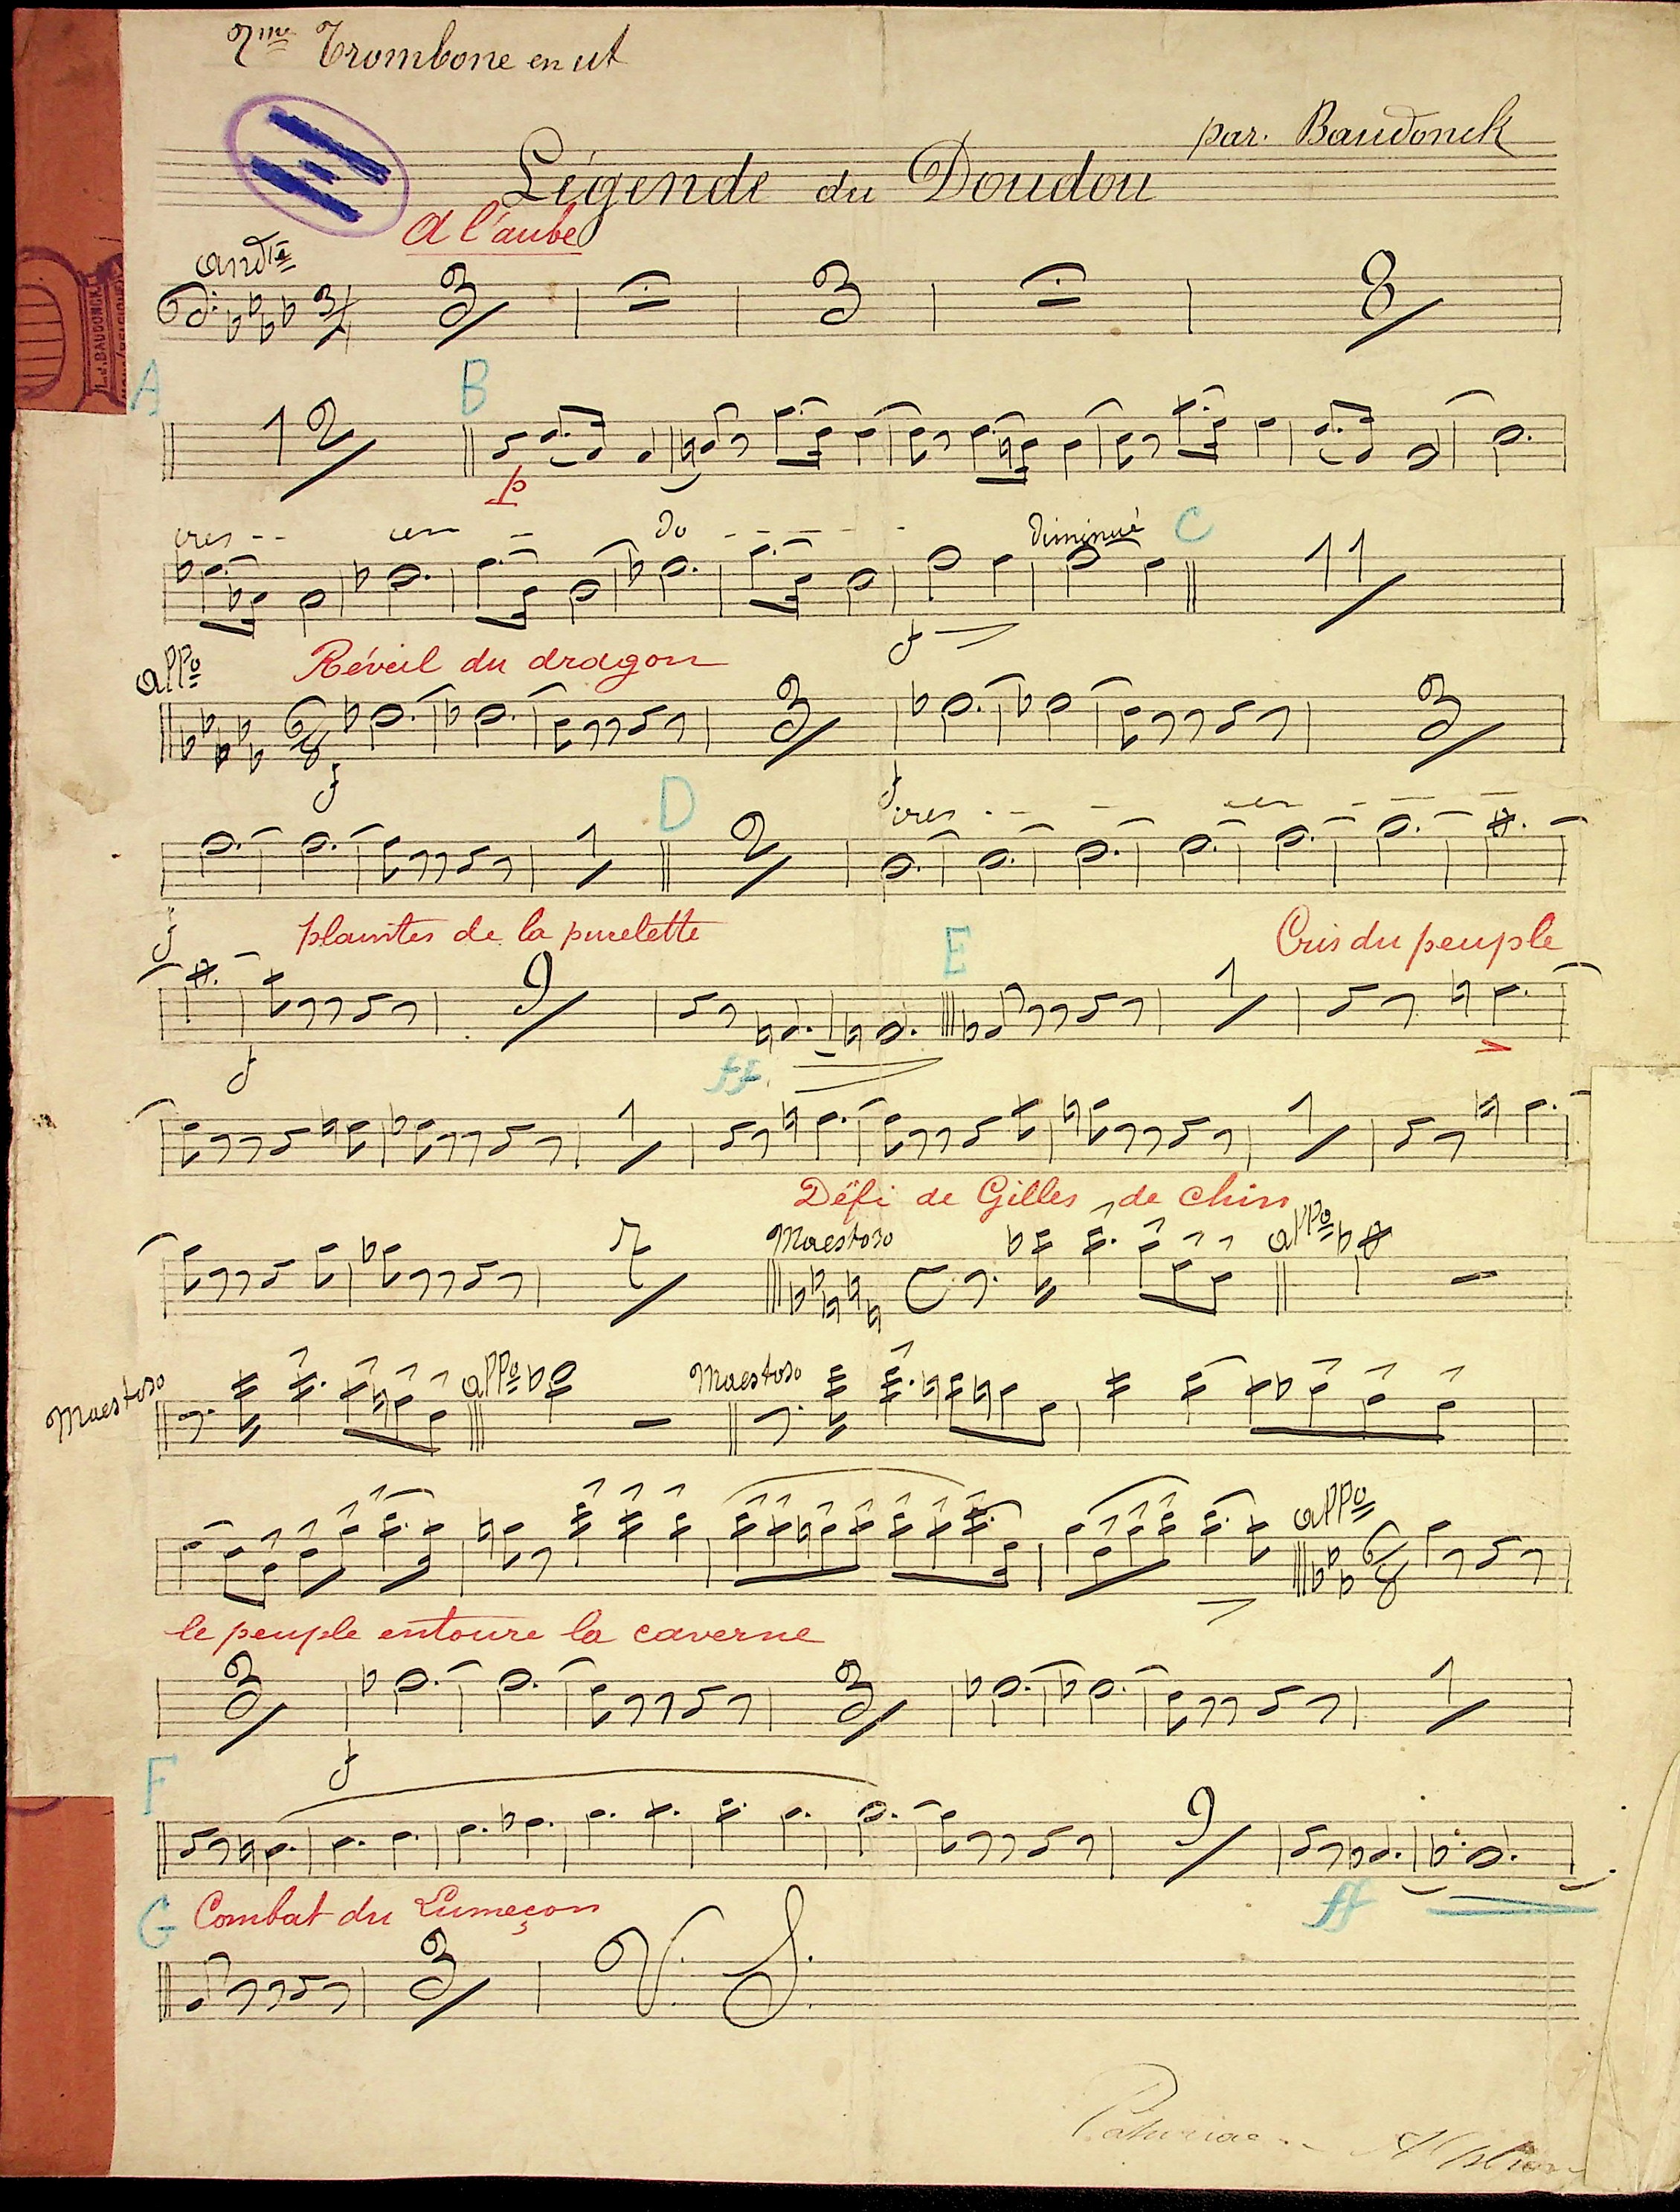 2me Trombone en ut
par. Baudonck
Légende du Doudou
A l'aube
Andte
3 3 8
A 12 B
p
cres -- cen - do - - - - - diminué C 11
f
allo Réveil du dragon
6/8 3 3
f f
D
1 2 cres - - - cen - - - -
f plaintes de la pucelette E Cris du peuple
9 1
f ff
1 1
Défi de Gilles de Chin
2 Maestoso C allo
Maestoso allo Maestoso
allo
6/8
le peuple entoure la caverne
3 3 1
f
F
9
ff
G Combat du Lumeçon
3 V. S.